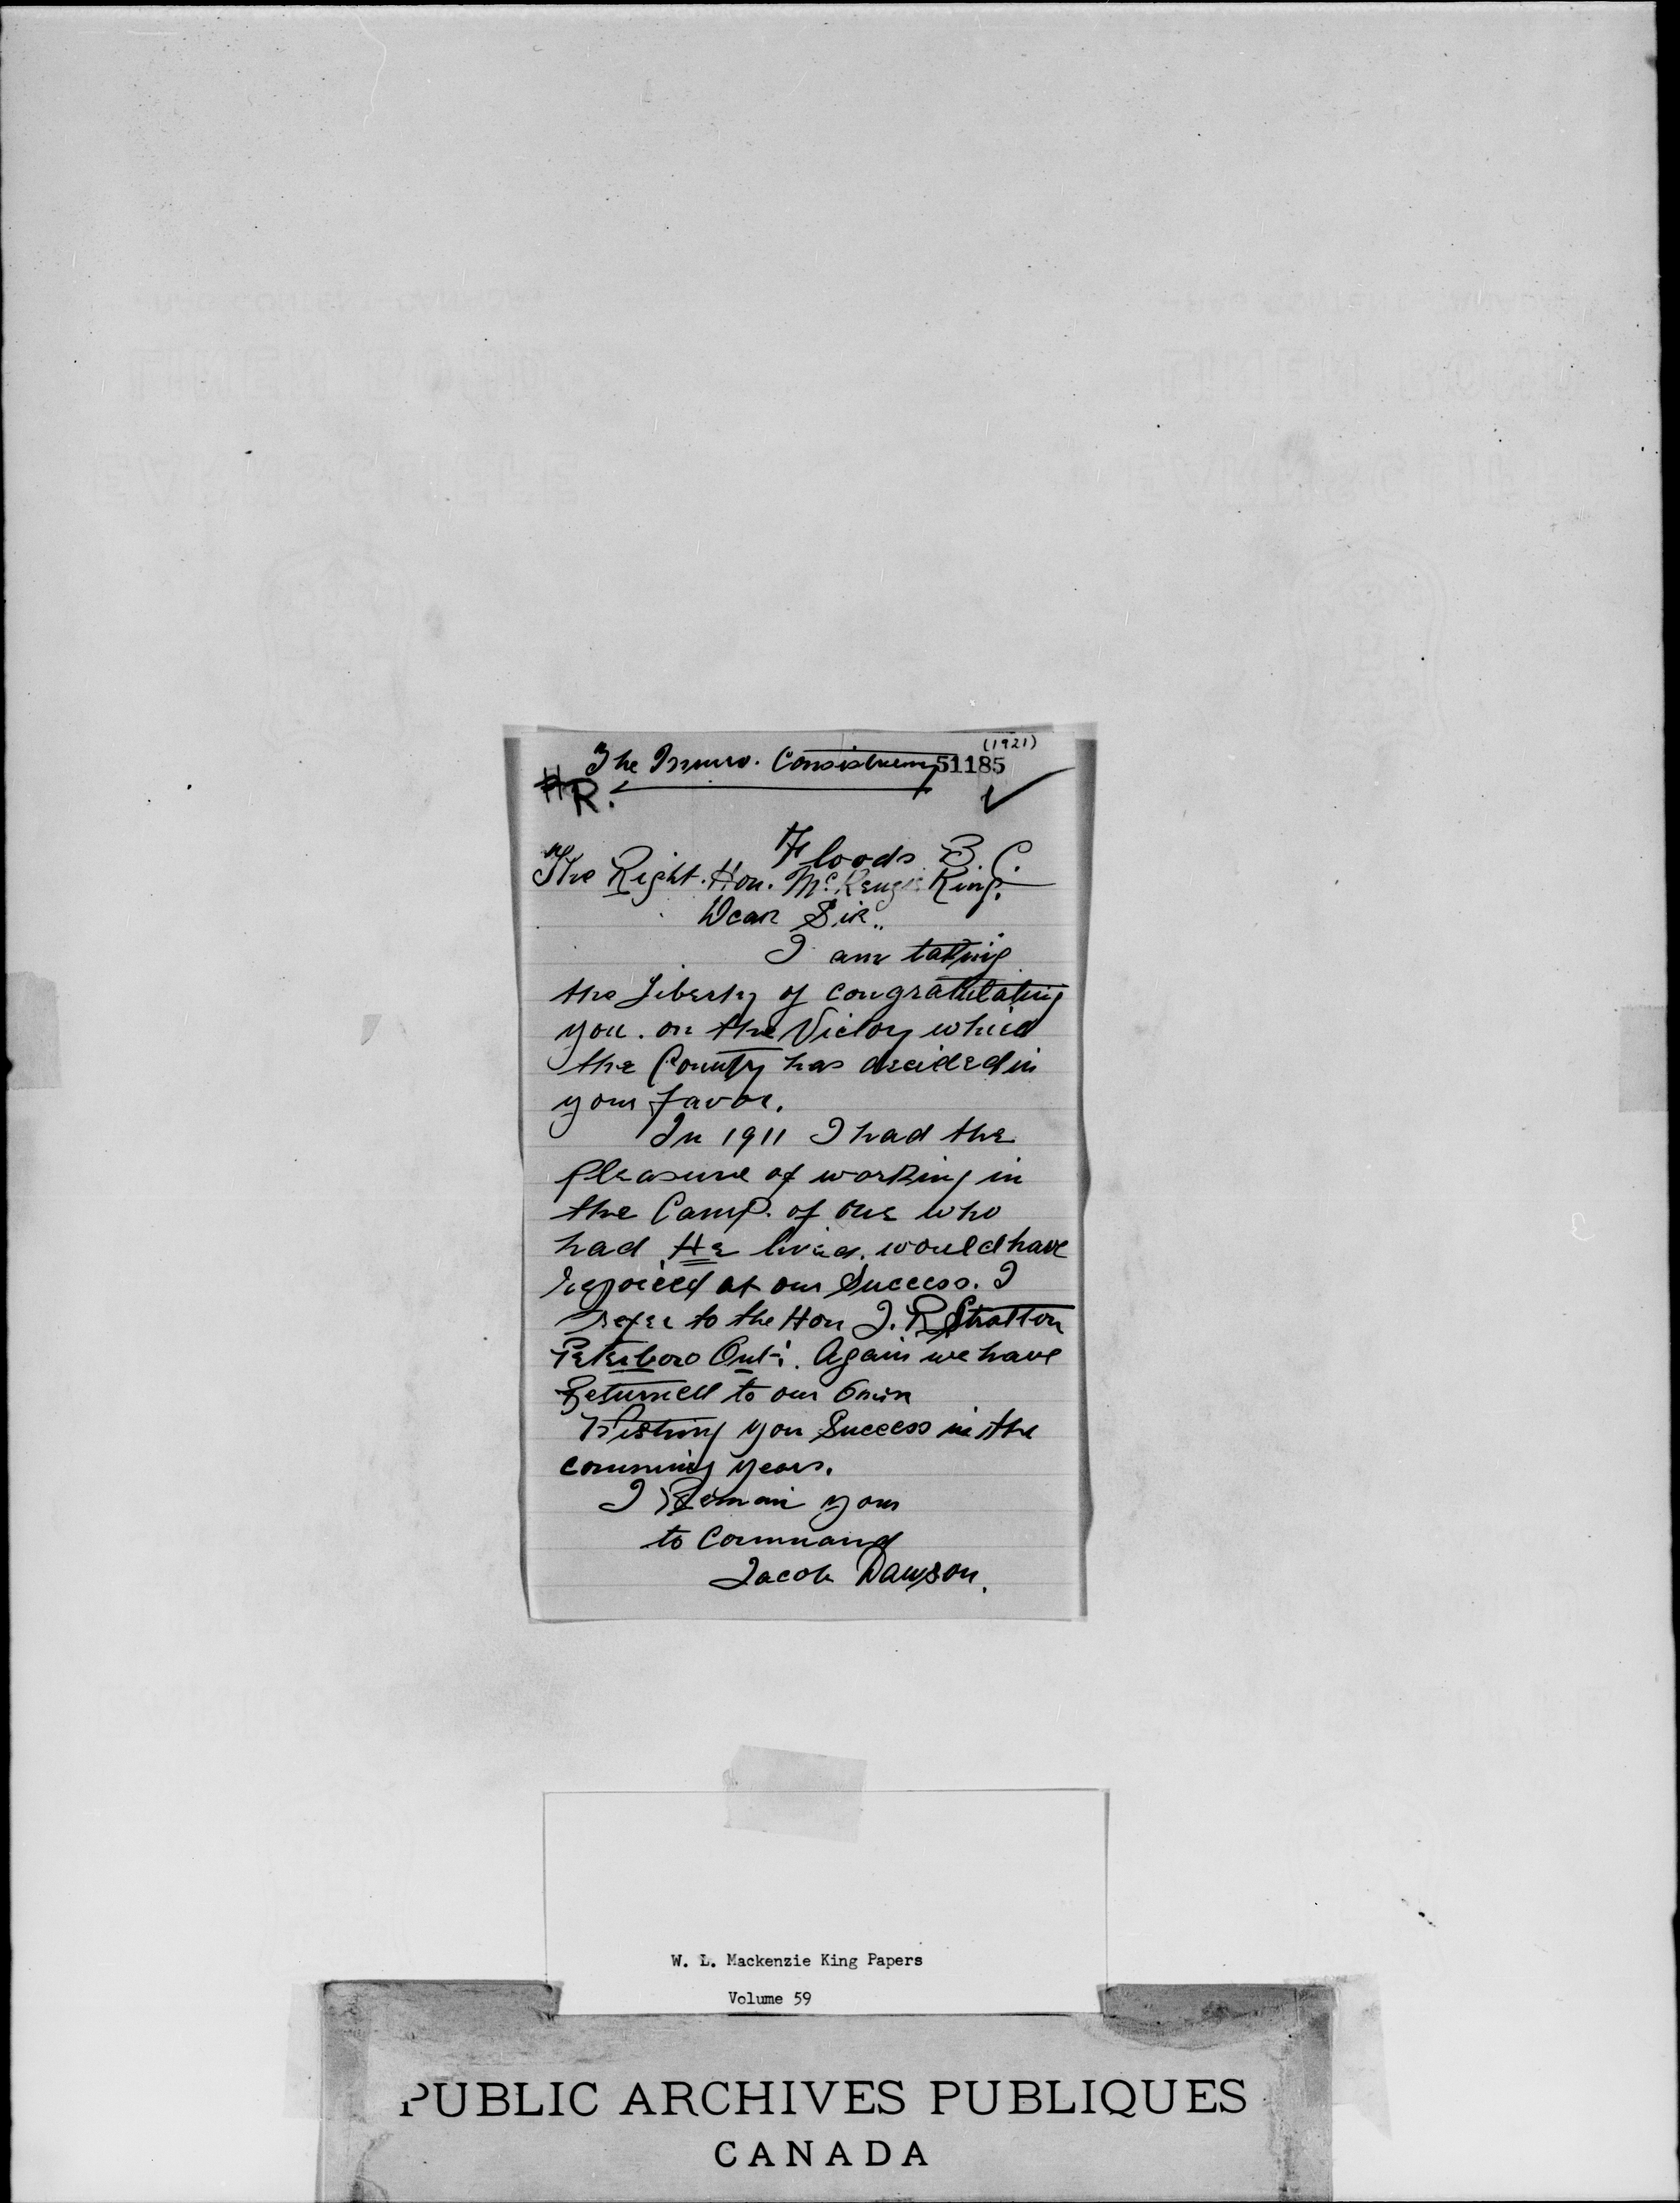 (1921)
The Consistuency 51185
R.
Floods B.C.
The Right. Hon. McKenzie King.
Dear Sir..
I am taking
the Liberty of congratulating
you. on the Victory which
the Country has decided in
your favor.
In 1911 I had the
pleasure of working in
the Camp. of one who
had He lived. would have
rejoiced at our Success. I
refer to the Hon J. R Stratton
Peterboro Ont. Again we have
Returned to our Own
Wishing you Success in the
comming years.
I Remain your
to Command
Jacob Dawson.
W. L. Mackenzie King Papers
Volume 59
PUBLIC ARCHIVES PUBLIQUES
CANADA